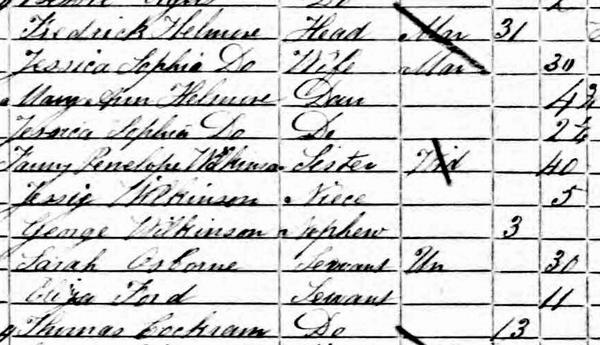 Fredrick Helmore Head Mar 31
Jessica Sophia Do Wife Mar 30
Mary Ann Helmore Daur 4
Jessica Sophia Do Do 2
Fanny Penelope Wilkinson Sister Wid 40
Jessie Wilkinson Niece 5
George Wilkinson Nephew 3
Sarah Osborne Servant Un 30
Eliza Ford Servant 11
Thomas Cockram Do 13